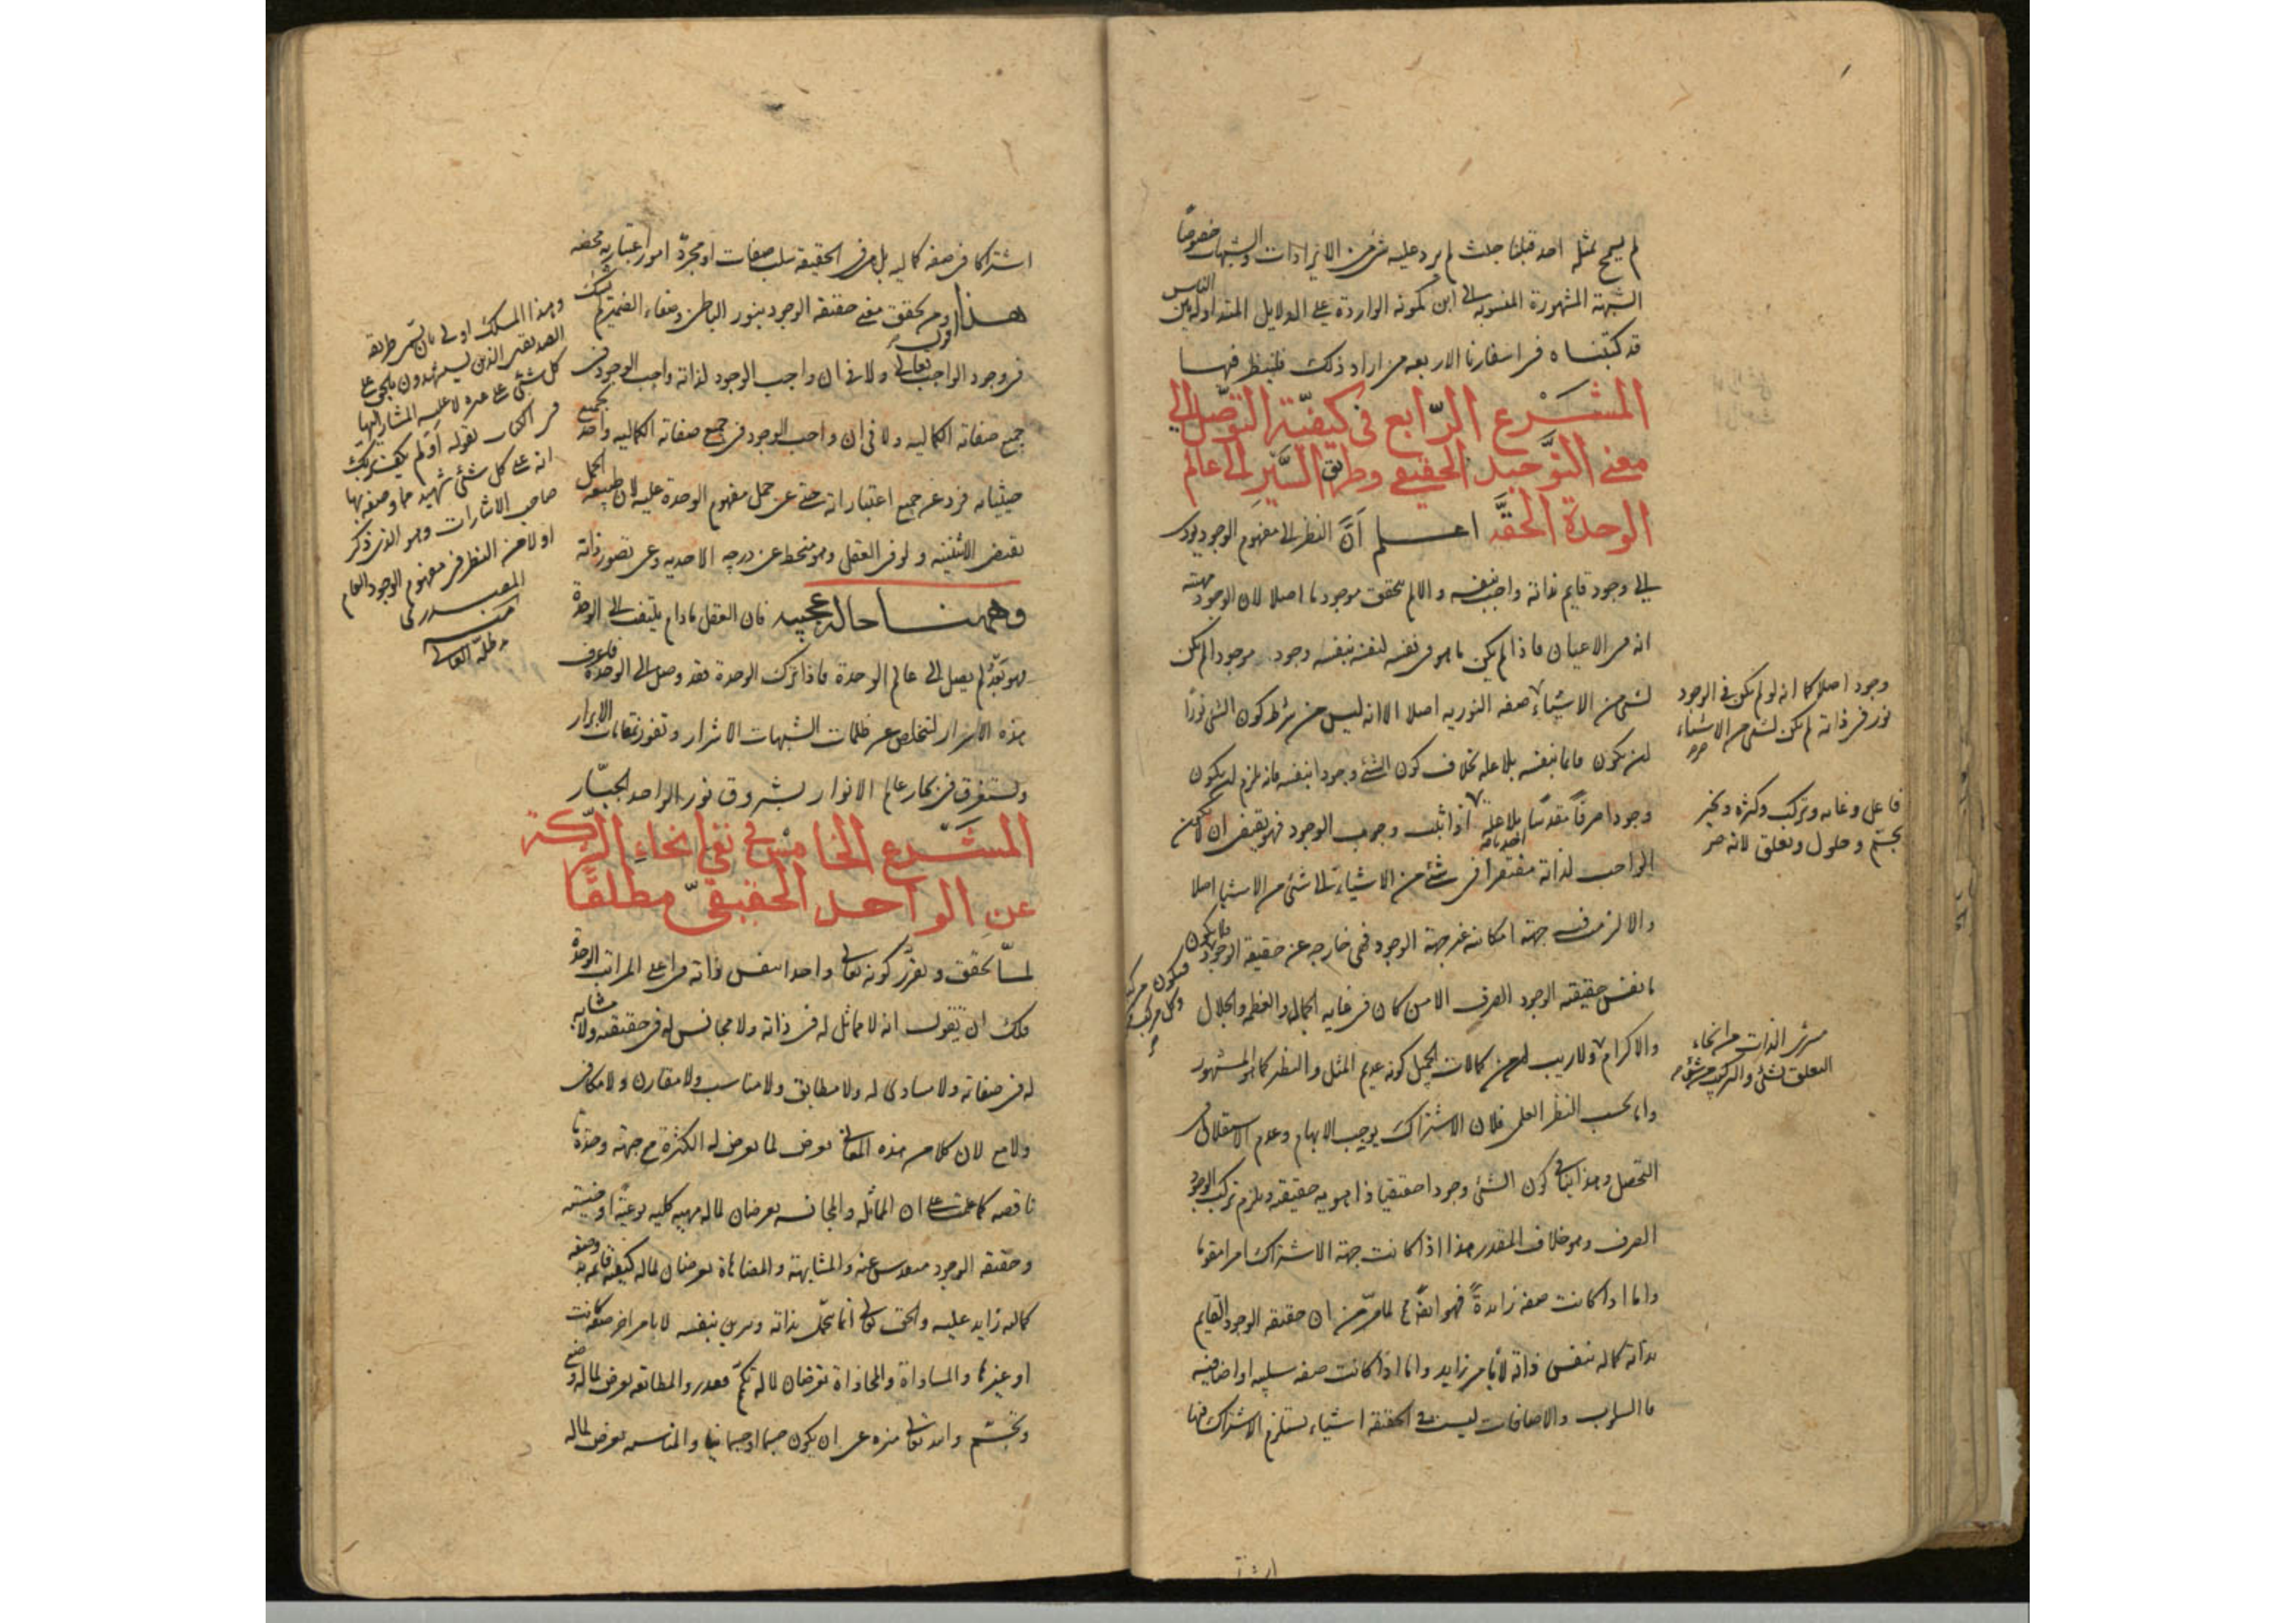 لم يسمح بمثله احد قبلنا حيث لم يرد عليه شئ من الايرادات والشبهات خصوصًا
الشبهة المشهورة المنسوبه الى ابن كمونه الواردة على الدلايل المتداوله بين الناس
قد كتبناه فى اسفارنا الاربعه من اراد ذلك فلينظر فيها
المشرع الرّابع فى كيفيّة التوصّل الى
معنى التوحيد الحقيقى وطريق السّير الى عالم
الوحدة الحقّه اعلم أنّ النظر الى مفهوم الوجود يودى
الى وجود قايم بذاته واجب بنفسه والا لم يتحقق موجود ما اصلا لان الوجود مهيته
انه فى الاعيان فاذا لم يكن ما هو فى نفسه لنفسه بنفسه وجود موجودا لم يكن
لشئ من الاشياء صفه النوريه اصلا الا انه ليس من شرط كون الشئ نورًا
ان يكون قائما بنفسه بلا علة بخلاف كون الشئ وجودا بنفسه فانه يلزم ان يكون
وجودا صرفًا مقدسًا بلا علة اذا ثبت وجوب الوجود فهو يقتضى ان لا يكون
الواجب لذاته مفتقرا فى شئ من الاشياء الى شئ من الاشيا اصلا
والا لزم فيه جهة امكانيه غير جهة الوجود فهى خارجه عن حقيقة الوجود فلا يكون
ما نفس حقيقته الوجود الصرف الا من كان فى غايه الجمال والعظمه والجلال
والاكرام ولا ريب ان من كمالات الجميل كونه عديم المثل والنظير كما هو المشهور
واما بحسب النظر العلمى فلان الاشتراك يوجب الابهام وعدم الاستقلال فى
التحصل وهذا ينافى كون الشئ وجودا حقيقيا ذا هويه حقيقه ويلزم تركب الوجود
الصرف وهو خلاف المقدر هذا اذا كانت جهة الاشتراك امرا مقوما
واما اذا كانت صفه زايدةً فهو ايضًا مح لما مرّ من ان حقيقه الوجود القايم
بذاته كماله بنفس ذاته لا بامر زايد واما اذا كانت صفه سلبيه او اضافيه
فالسلوب والاضافات ليست فى الحقيقه اشياء يستلزم الاشتراك فيها
وجود اصلا كما انه لو لم يكن فى الوجود
نور فى ذاته لم يكن لشئ من الاشياء
فاعل وغايه وتركب وكثره وتغير
تجسّم وحلول وتعلق لانه
الذات من انحاء
التعلق بشئ والتركب من شئ
فيكون مركبا
وكل مركب
اشترا
اشتراكا فى صفه كماليه بل هى فى الحقيقه سلب صفات او مجرّد امور اعتباريه محضه
هذا ومن تحقق معنى حقيقه الوجود بنور الباطن وصفاء الضمير لم يشك
فى وجود الواجب تعالى ولا فى ان واجب الوجود لذاته واجب الوجود فى
جميع صفاته الكماليه ولا فى ان واجب الوجود فى جميع صفاته الكماليه واحد بجميع
حيثياته فرد عن جميع اعتباراته حتى عن حمل مفهوم الوحدة عليه لان طبيعه الحمل
يقتضى الاثنينيه ولو فى العقل وهو منحط عن درجه الاحديه وعن تصور ذاته
وههنا حاله عجيبه فان العقل مادام يلتفت الى الوحدة
فهو بَعْدُ لم يصل الى عالم الوحدة فاذا ترك الوحدة فقد وصل الى الوحدة فاعرف
هذه الاسرار لتخلص عن ظلمات الشبهات الاشرار وتفوز بمقامات الابرار
وتستغرق فى بحار عالم الانوار بشروق نور الواحد الجبّار
المشرع الخامس فى نفى انحاء الشركة
عن الواحد الحقيقىّ مطلقًا
لمّا تحقق وتقرّر كونه تعالى واحدا بنفس ذاته فى اعلى المراتب الوحدة
فلك ان تقول انه لا مماثل له فى ذاته ولا مجانس له فى حقيقته ولا مشابه
له فى صفاته ولا مساوى له ولا مطابق ولا مناسب ولا مقارن ولا مكافى
ولا مع لان كلا من هذه المعانى يعرض لما يعرض له الكثرة مع جهة وحدة ما
ناقصه كما علمت على ان المماثله والمجانسه يعرضان لما له مهيه كليه نوعيّه او جنسيّه
وحقيقه الوجود مقدس عنه والمشابهة والمضاهاة يعرضان لما له كيفيّه قائمه به وصفه
كماليه زايد عليه والحق تعالى انما تجمّل بذاته وتزين بنفسه لا بامر اخر صفه كانت
او غيرها والمساواة والمحاذاة تعرضان لما له تكمّم مقدر والمطابقه يعرض لما له وضع
وتجسّم والله تعالى منزه عن ان يكون جسما او جسمانيا والمناسبه يعرض لما له
وهذا المسلك اولى بان يسمى طريقه
الصديقين الذين يستشهدون بالحق على
كل شئ على غيره لا عليه المشار اليها
فى الكتاب بقوله أولم يكف بربك
انه على كل شئ شهيد مما وصفه بها
صاحب الاشارات وهو الذى ذكر
اولا من النظر فى مفهوم الوجود العام
المصدرى
منه
مد ظله العالى